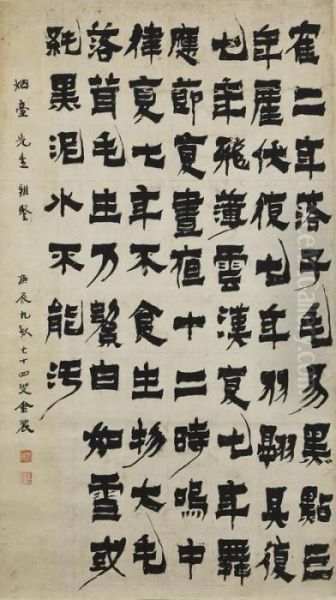 隺二年落子毛易黑點三
年產伏復七年羽翮具復
七年飛薄雲漢复七年舞
應節复晝夜十二時鳴中
律复七年不食生物大毛
落茸毛生乃白如雪或
純黑泥水不能污
烟臺先生雅鑒
庚辰九秋七十四叟金農